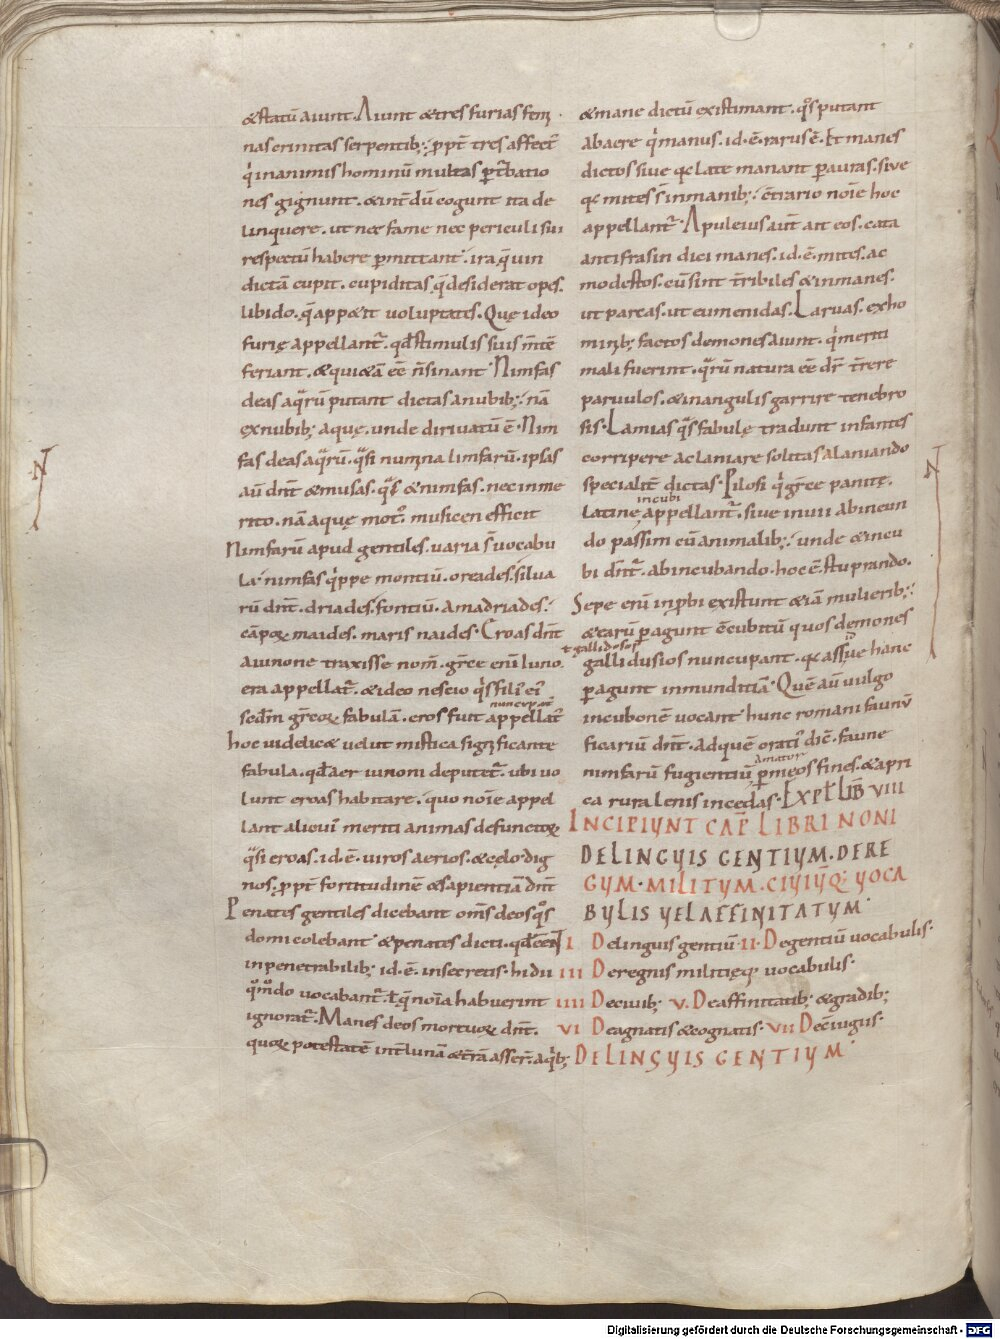 &statū aiunt. Aiunt &tres furias femi
nas crinitas serpentib;. ppt̄ tres affect̄
q̓ in animis hominū multas p̱t̄batio
nes gignunt. & int̄dū cogunt ita de
linquere. ut nec fame nec periculi sui
respectū habere p̱mittant. ira. q̄ uin
dictā cupit. cupiditas. q̄ desiderat opes.
libido. q̄ app&it uoluptates. Quę ideo
furię appellant̄. qđ stimulis suis m̄tē
feriant. & qui&ā eē n̄ sinant. Nimfas
deas aq̄rū putant dictas anubib;. nā
ęx nubib; aquę. unde diriuatū ē. Nim
fas deas aq̄rū. q̄si numina limfarū. ipsas
aū dn̄t & musas. q̄s & nimfas. nec inme
rito. nā aquę mot᷒ musicen efficit
Nimfarū apud gentiles. uaria s̄ uocabu
la. nimfas q̓ppe montiū. oreades. silua
rū dn̄t. driades. fontiū. amadriades.
cāpoꝝ maides. maris naides. Eroas dn̄t
a iunone traxisse nom̄. grēce enī Iuno
era appellat̄. & ideo nescio q̓s fili᷒ ei᷒
nuncupat᷒
sedm̄ grēcoꝝ fabulā. eros fuit appellat᷒
hoc uidelic& uelut mistica significante
fabula. qđ aer iunoni deputet̄. ubi uo
lunt eroas habitare. quo noīe appel
lant alicui᷒ meriti animas defunctoꝝ
q̄si eroas. id. ē. uiros aerios. & cęlo dig
nos. ppt̄ fortitudinē & sapientiā dn̄t
Penates gentiles dicebant om̄s deos q̓s
domi colebant. & penates dicti. qđ eēnt
in penetrabilib; id. ē. in secretis. hi dii
q̊m̊do uocabant̄. ł q̄ noīa habuerint
ignorat̄. Manes deos mortuoꝝ dn̄t.
quoꝝ potestatē int̄ lunā & t̄rā asser̄. a q̓b;
& mane dictū existimant. q̊s putant
ab aere q̓ manus. id. ē. rarus ē. Et manes
dictos siue qꝛ late manant p̱ auras. siue
qꝛ mites s̄ inmanib;. c̄trario noīe hoc
appellant̄. Apuleius aūt ait eos. cata
antifrasin dici manes. id. ē. mites. ac
modestos. cū sint t̄ribiles & inmanes.
ut parcas. ut eumenidas. Laruas. ex ho
minib; factos demones aiunt. q̓ meriti
mali fuerint. q̄rū natura eē dr̄ t̄rere
paruulos. & in angulis garrire tenebro
sis. Lamias q̄s fabulę tradunt infantes
corripere ac laniare solitas a laniando
specialit̄ dictas. Pilosi q̓ grēce panitę.
incubi
Latinę appellant̄. siue inuii ab ineun
do passim cū animalib;. unde & incu
bi dn̄t̄. ab incubando. hoc ē. stuprando.
Sepe enī inp̱bi existunt &iā mulierib;.
& earū p̱agunt c̄cubitū quos demones
ł gallidosos
galli dusios nuncupant. qꝛ assidue hanc
p̱agunt inmunditiā. Quē aū uulgo
incubonē uocant. hunc romani faunū
ficariū dn̄t. Ad quē orati᷒ dic̄. faune
amator
nimfarū fugientiū p̱ meos fines. & apri
ca rura lenis incedas. Expł Lib̄ VIII
INCIPIUNT CAP̄ LIBRI NONI
DE LINGUIS GENTIUM. DE RE
GUM. MILITUM. CIUIUMQ; UOCA
BULIS UEL AFFINITATUM.
I De linguis gentiū. II. De gentiū uocabulis.
III De regnis militięq; uocabulis.
IIII De ciuib; V. De affinitatib; & gradib;
VI De agnatis & cognatis. VII De c̄iugiis.
DE LINGUIS GENTIUM.
Digitalisierung gefördert durch die Deutsche Forschungsgemeinschaft - DFG